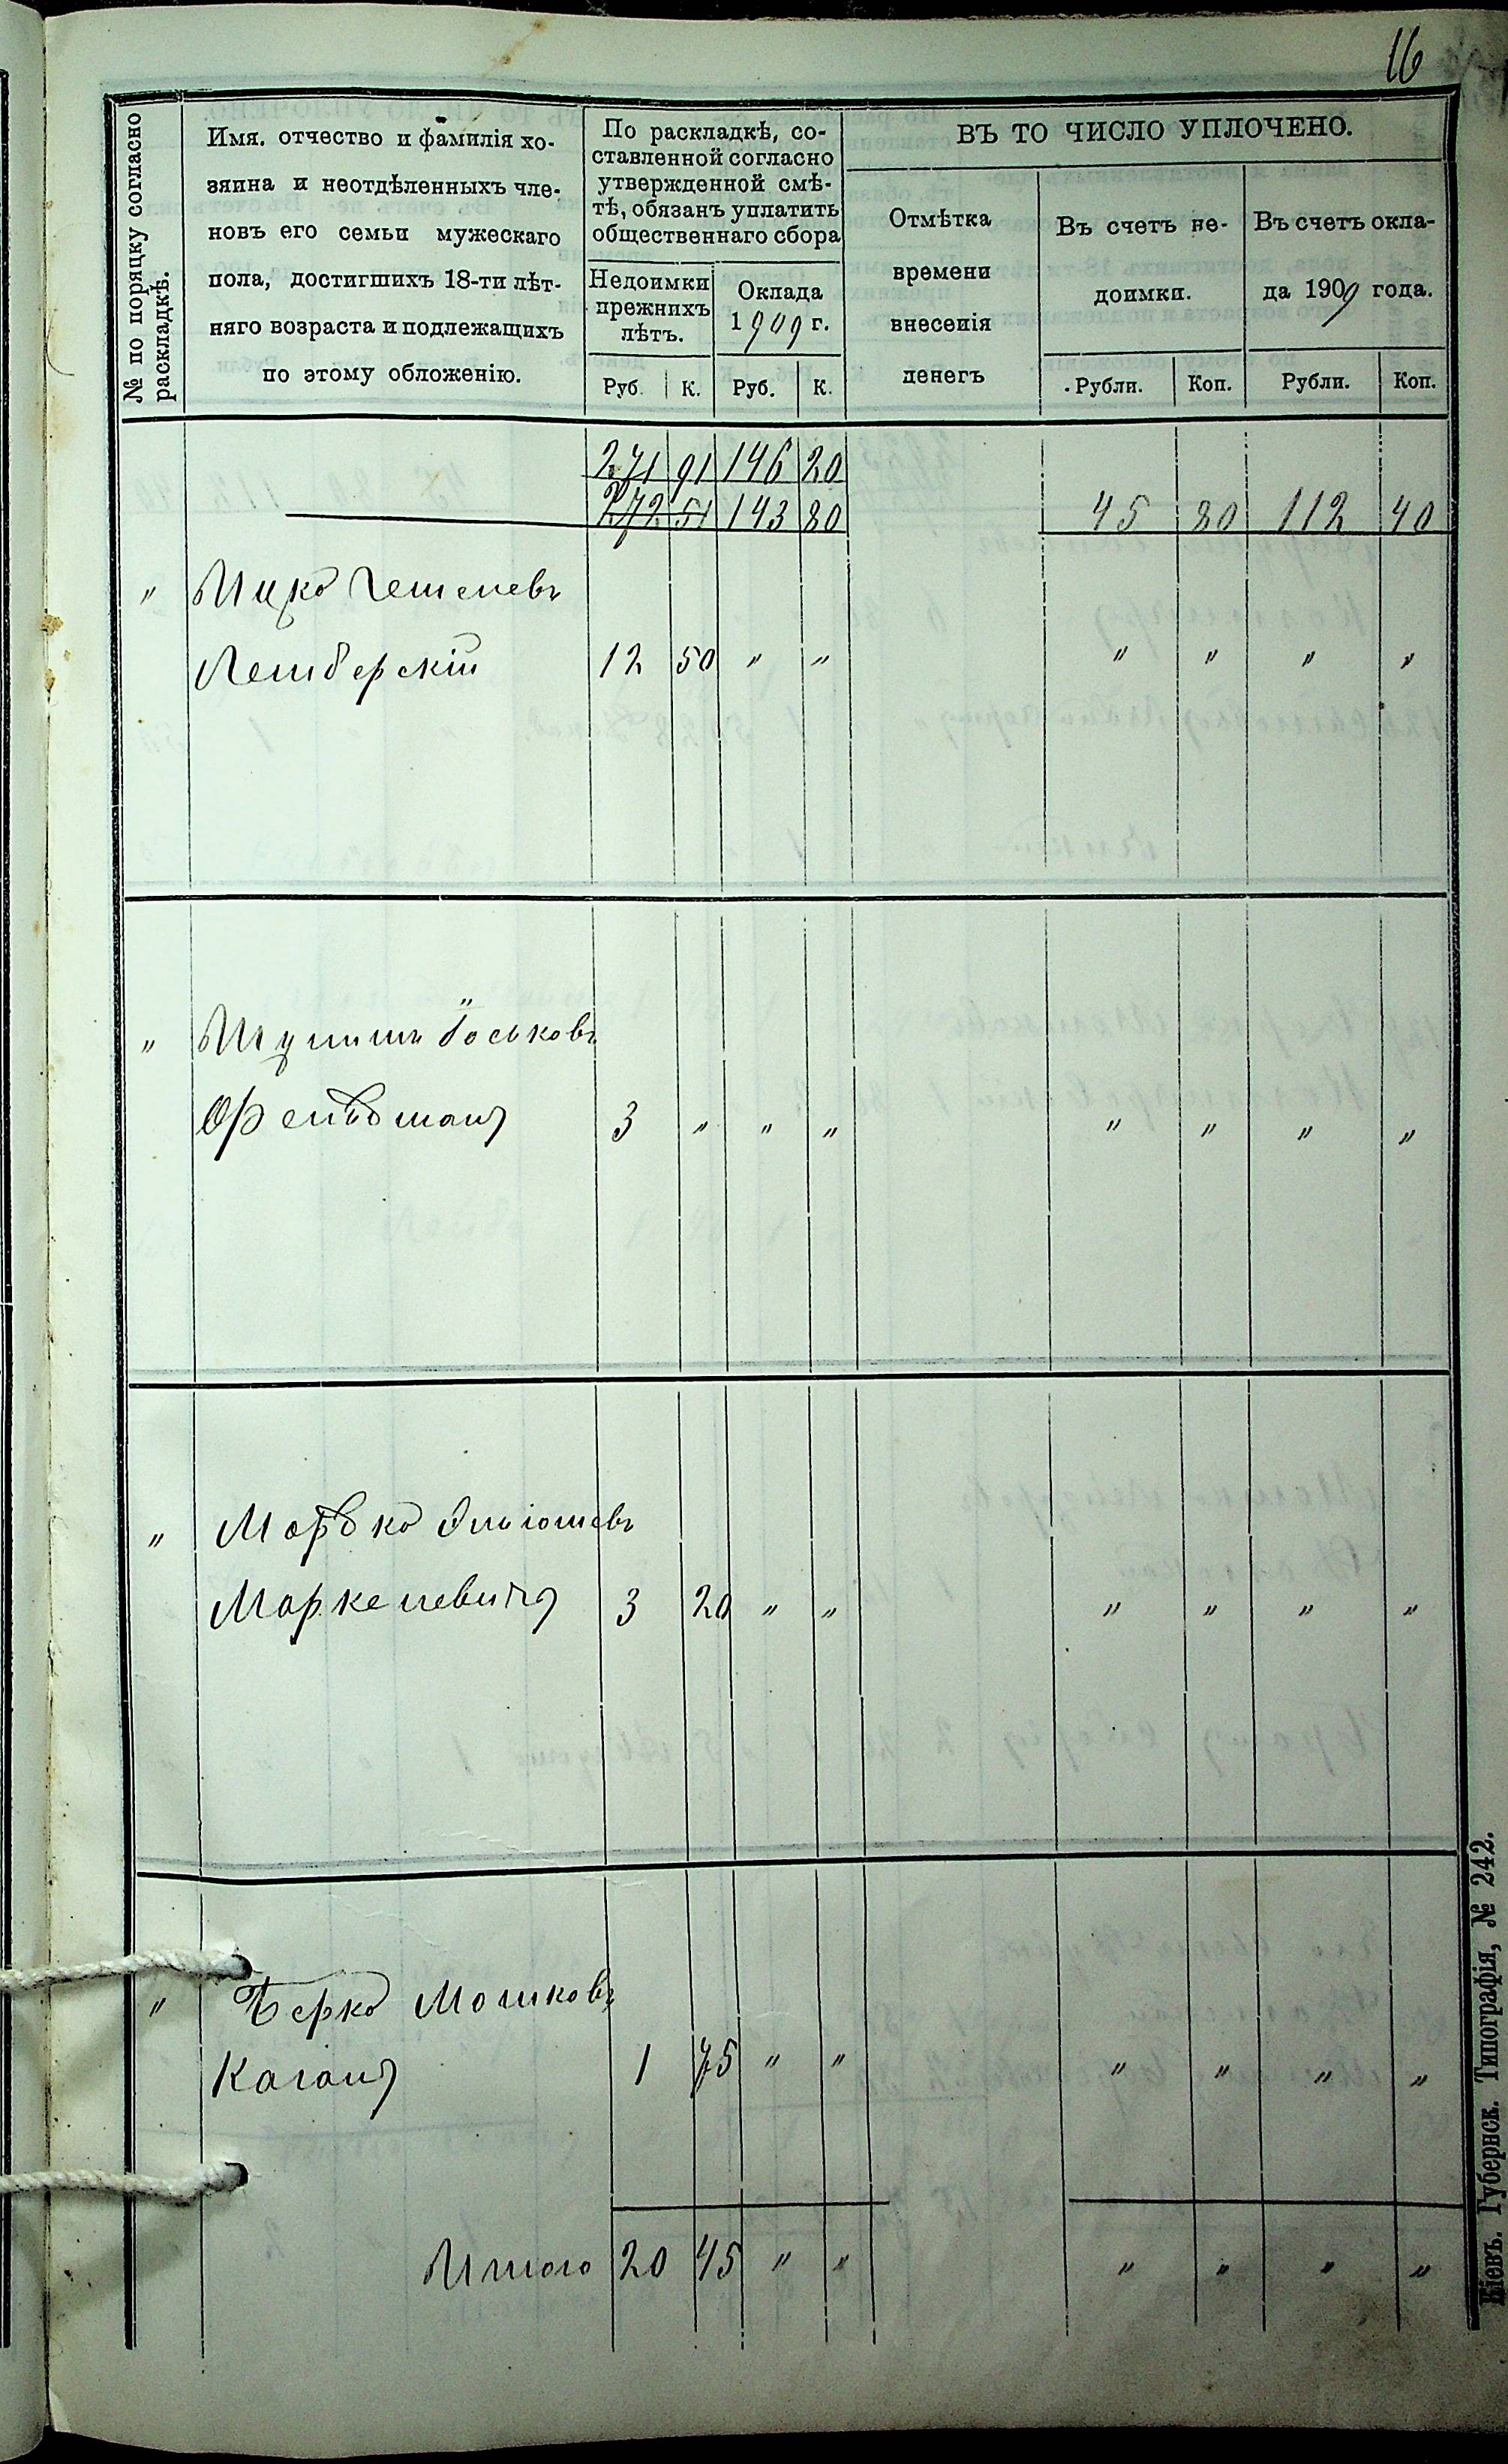 16
№ по порядку согласно раскладкѣ.
Имя. отчество и фамилія хо-
зяина и неотдѣленныхъ чле-
новъ его семьи мужескаго
пола, достигшихъ 18-ти лѣт-
няго возраста и подлежащихъ
по этому обложенію.
По раскладкѣ, со-
ставленной согласно
утвержденной смѣ-
тѣ, обязанъ уплатить
общественнаго сбора
Недоимки
прежнихъ
лѣтъ.
Оклада
1909 г.
Руб. К. Руб. К.
ВЪ ТО ЧИСЛО УПЛОЧЕНО.
Отмѣтка
времени
внесенія
денегъ
Въ счетъ не-
доимки.
Въ счетъ окла-
да 1909 года.
Рубли. Коп. Рубли. Коп.
271 91 146 20
272 51 143 80 45 80 112 40
" Ицко Гешелевъ
Лемберскій 12 50 " " " " " "
" Ицыкъ Іоськовъ
Фельдманъ 3 " " " " " " "
" Мордко
Маркелевичъ 3 20 " " " " " "
" Берко Мошковъ
Каганъ 1 75 " " " " " "
Итого 20 45 " " " " " "
Кіевъ. Губернск. Типографія, № 242.